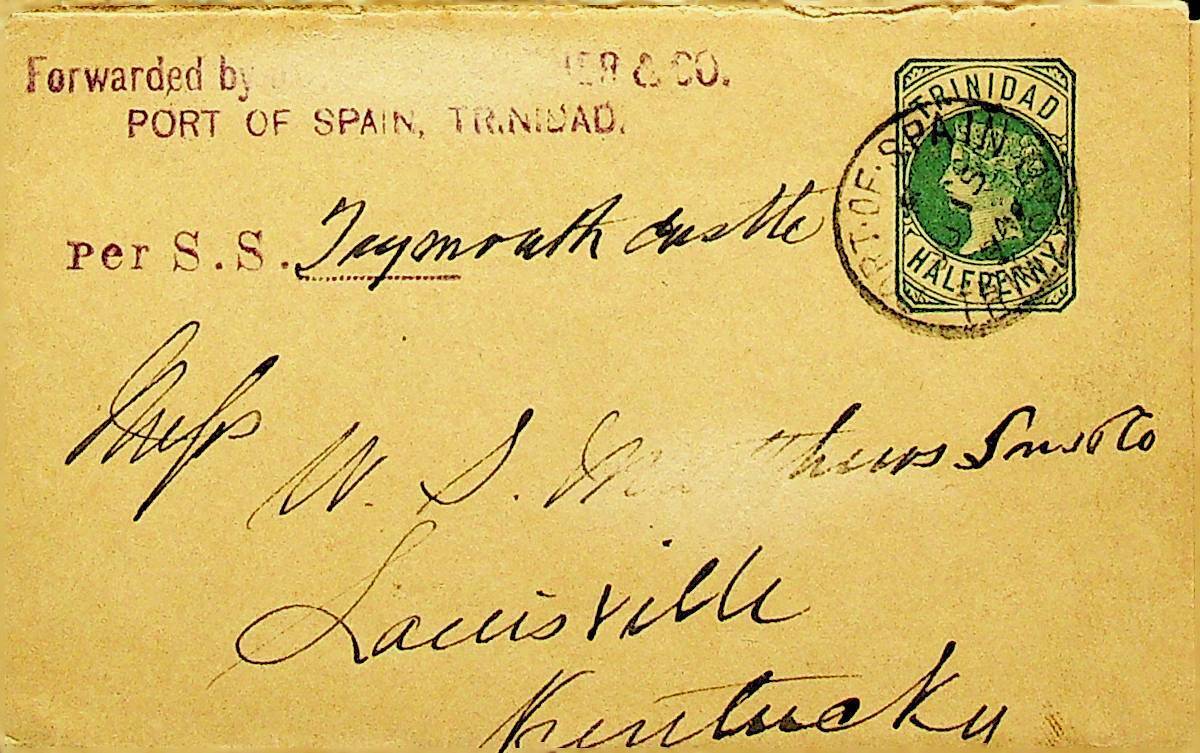 Forwarded by & CO.
PORT OF SPAIN, TRINIDAD.
TRINIDAD
HALFPENNY
PORT · OF · SPAIN
per S.S. Taymouth Castle
Messrs
W. S. Matthews Sons & Co
Louisville
Kentucky